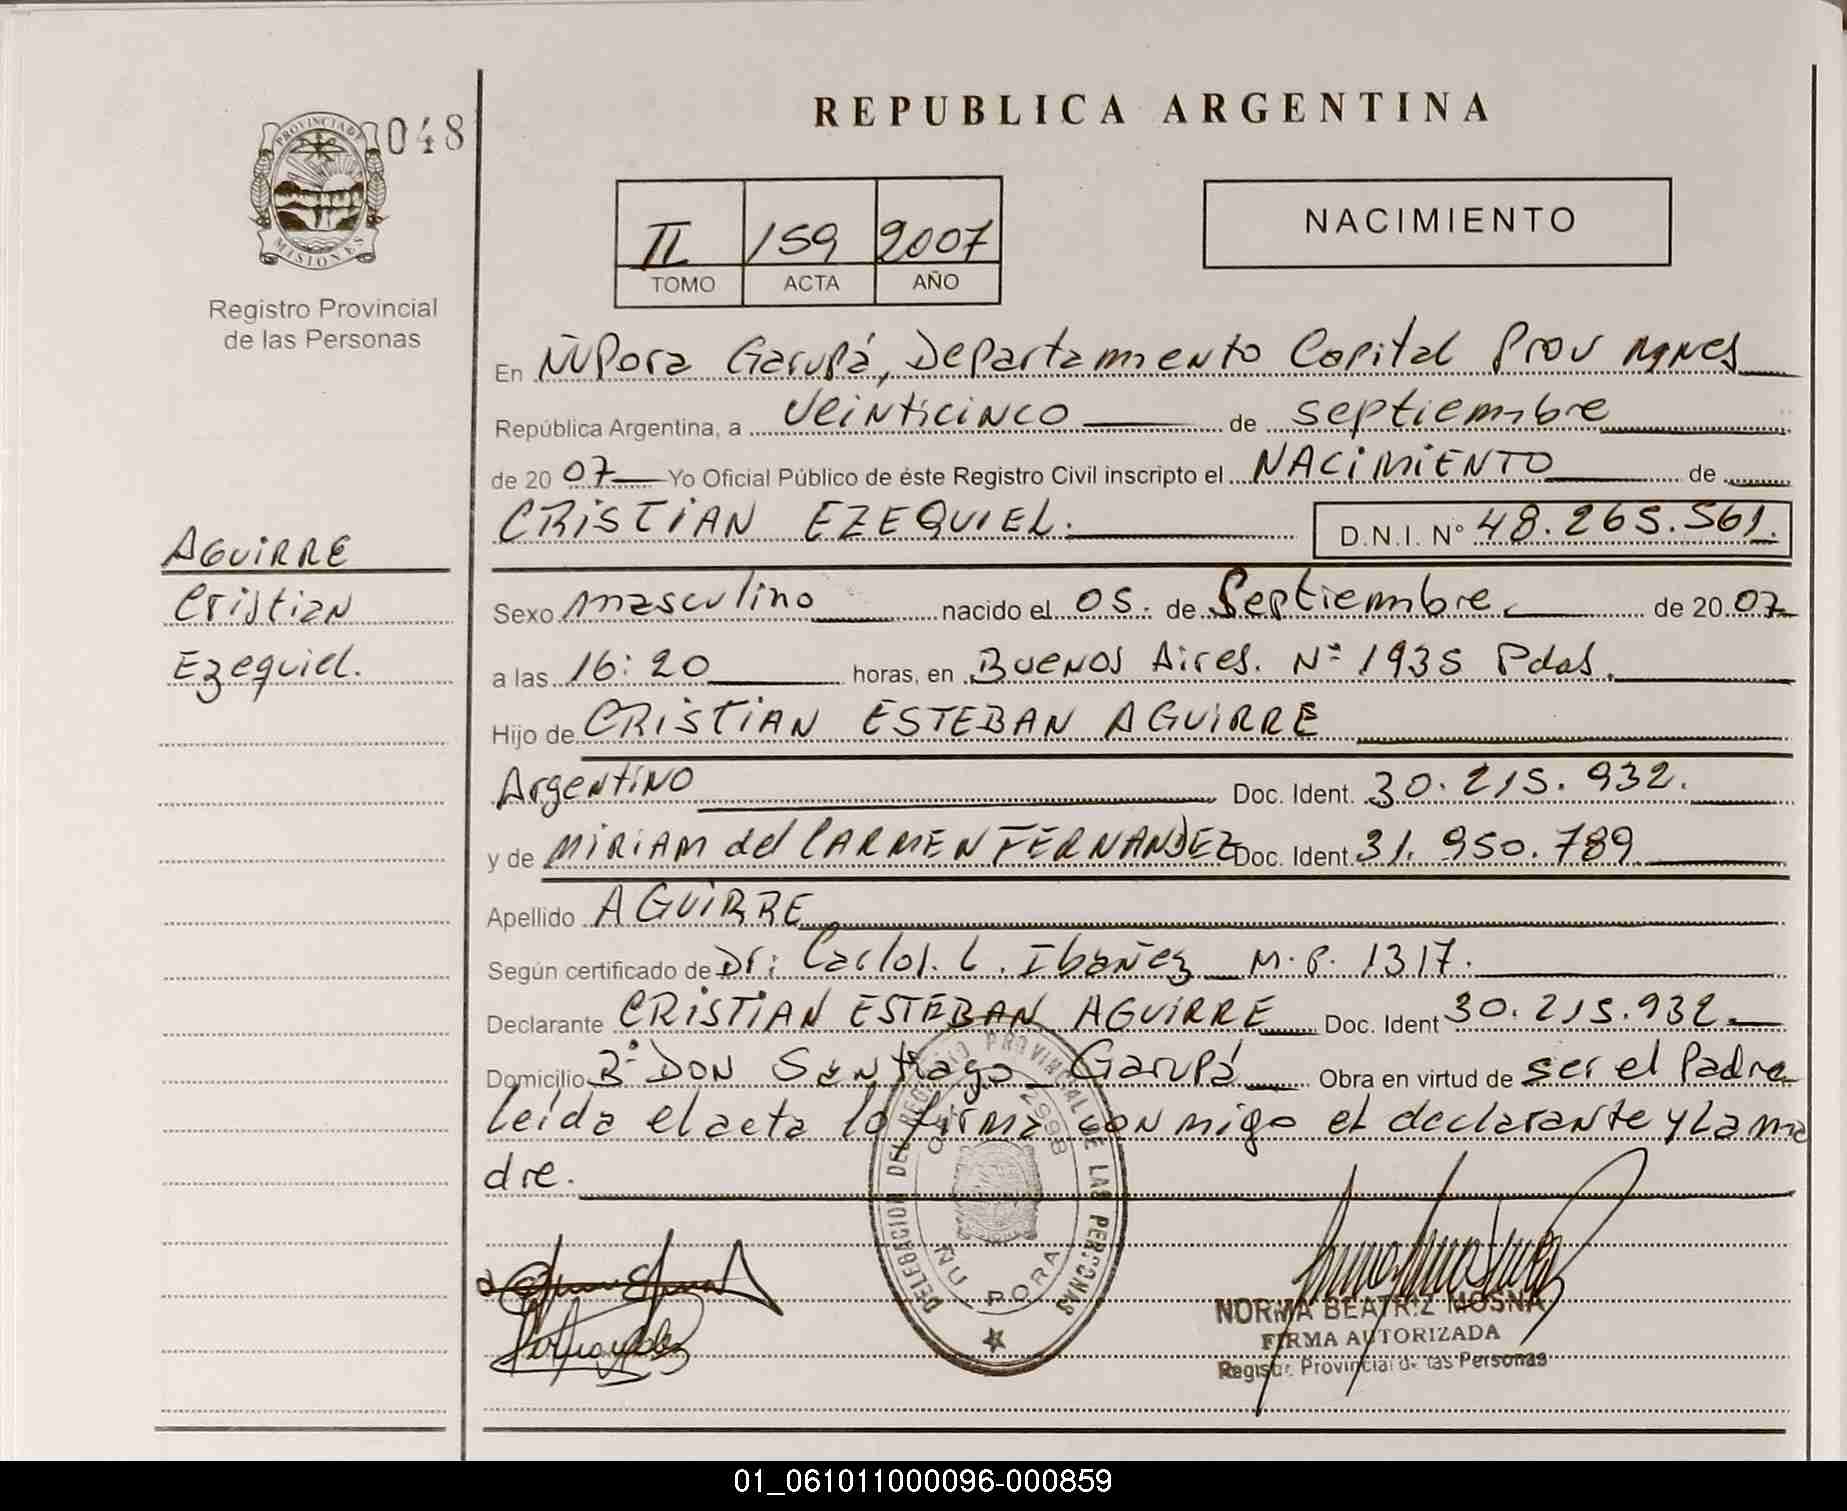 048
PROVINCIA DE
MISIONES
Registro Provincial
de las Personas
REPUBLICA ARGENTINA
II 159 2007
TOMO ACTA AÑO
NACIMIENTO
En Ñu Pora Garupá, Departamento Capital Prov Mnes
República Argentina, a veinticinco de septiembre
de 2007 Yo Oficial Público de éste Registro Civil inscripto el NACIMIENTO de
CRISTIAN EZEQUIEL. D.N.I. Nº 48.265.561.
AGUIRRE
Cristian
Ezequiel.
Sexo masculino nacido el 05. de Septiembre de 2007
a las 16:20 horas, en Buenos Aires. Nº 1935 Pdas.
Hijo de CRISTIAN ESTEBAN AGUIRRE
Argentino Doc. Ident. 30.215.932.
y de MIRIAM del CARMEN FERNANDEZ Doc. Ident. 31.950.789
Apellido AGUIRRE
Según certificado de Dr: Carlos. L. Ibañez M.P. 1317.
Declarante CRISTIAN ESTEBAN AGUIRRE Doc. Ident 30.215.932.
Domicilio Bº DON Santiago - Garupá Obra en virtud de ser el Padre
leida el acta lo firma conmigo el declarante y la ma
dre.
DELEGACION DEL REGISTRO PROVINCIAL DE LAS PERSONAS
2998
ÑU PORA
NORMA BEATRIZ MOSNA
FIRMA AUTORIZADA
Registro Provincial de las Personas
01_061011000096-000859